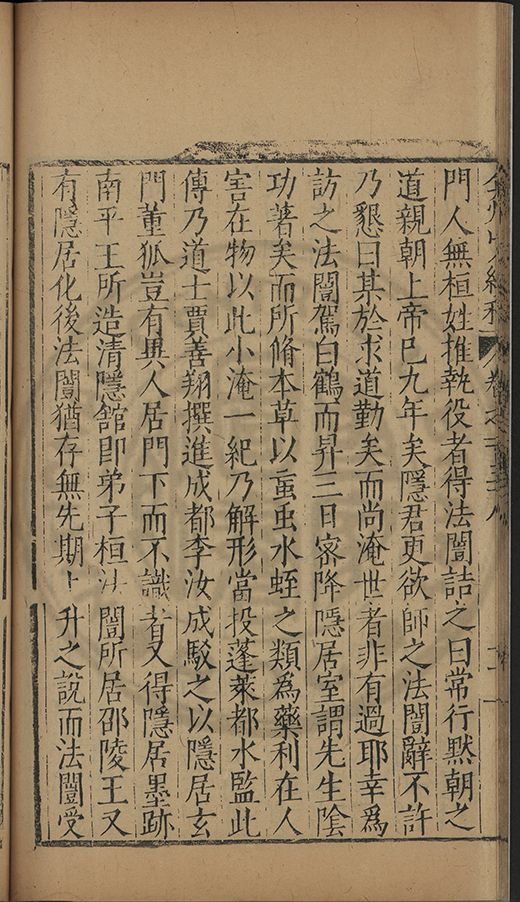 門人無桓姓推執役者得法闓詰之曰常行黙朝之
道親朝上帝巳九年矣隱君更欲師之法闓辭不許
乃懇曰某於求道勤矣而尚淹世者非有過耶幸爲
訪之法闓駕白鶴而昇三日密降隱居室謂先生陰
功著矣而所脩本草以䖟虫水蛭之類爲藥利在人
害在物以此小淹一紀乃解形當投蓬萊都水監此
傳乃道士賈善翔撰進成都李汝成駁之以隱居玄
門董狐豈有異人居門下而不識者又得隱居墨跡
南平王所造清隱舘即弟子桓法闓所居邵陵王又
有隱居化後法闓猶存無先期上升之說而法闓受